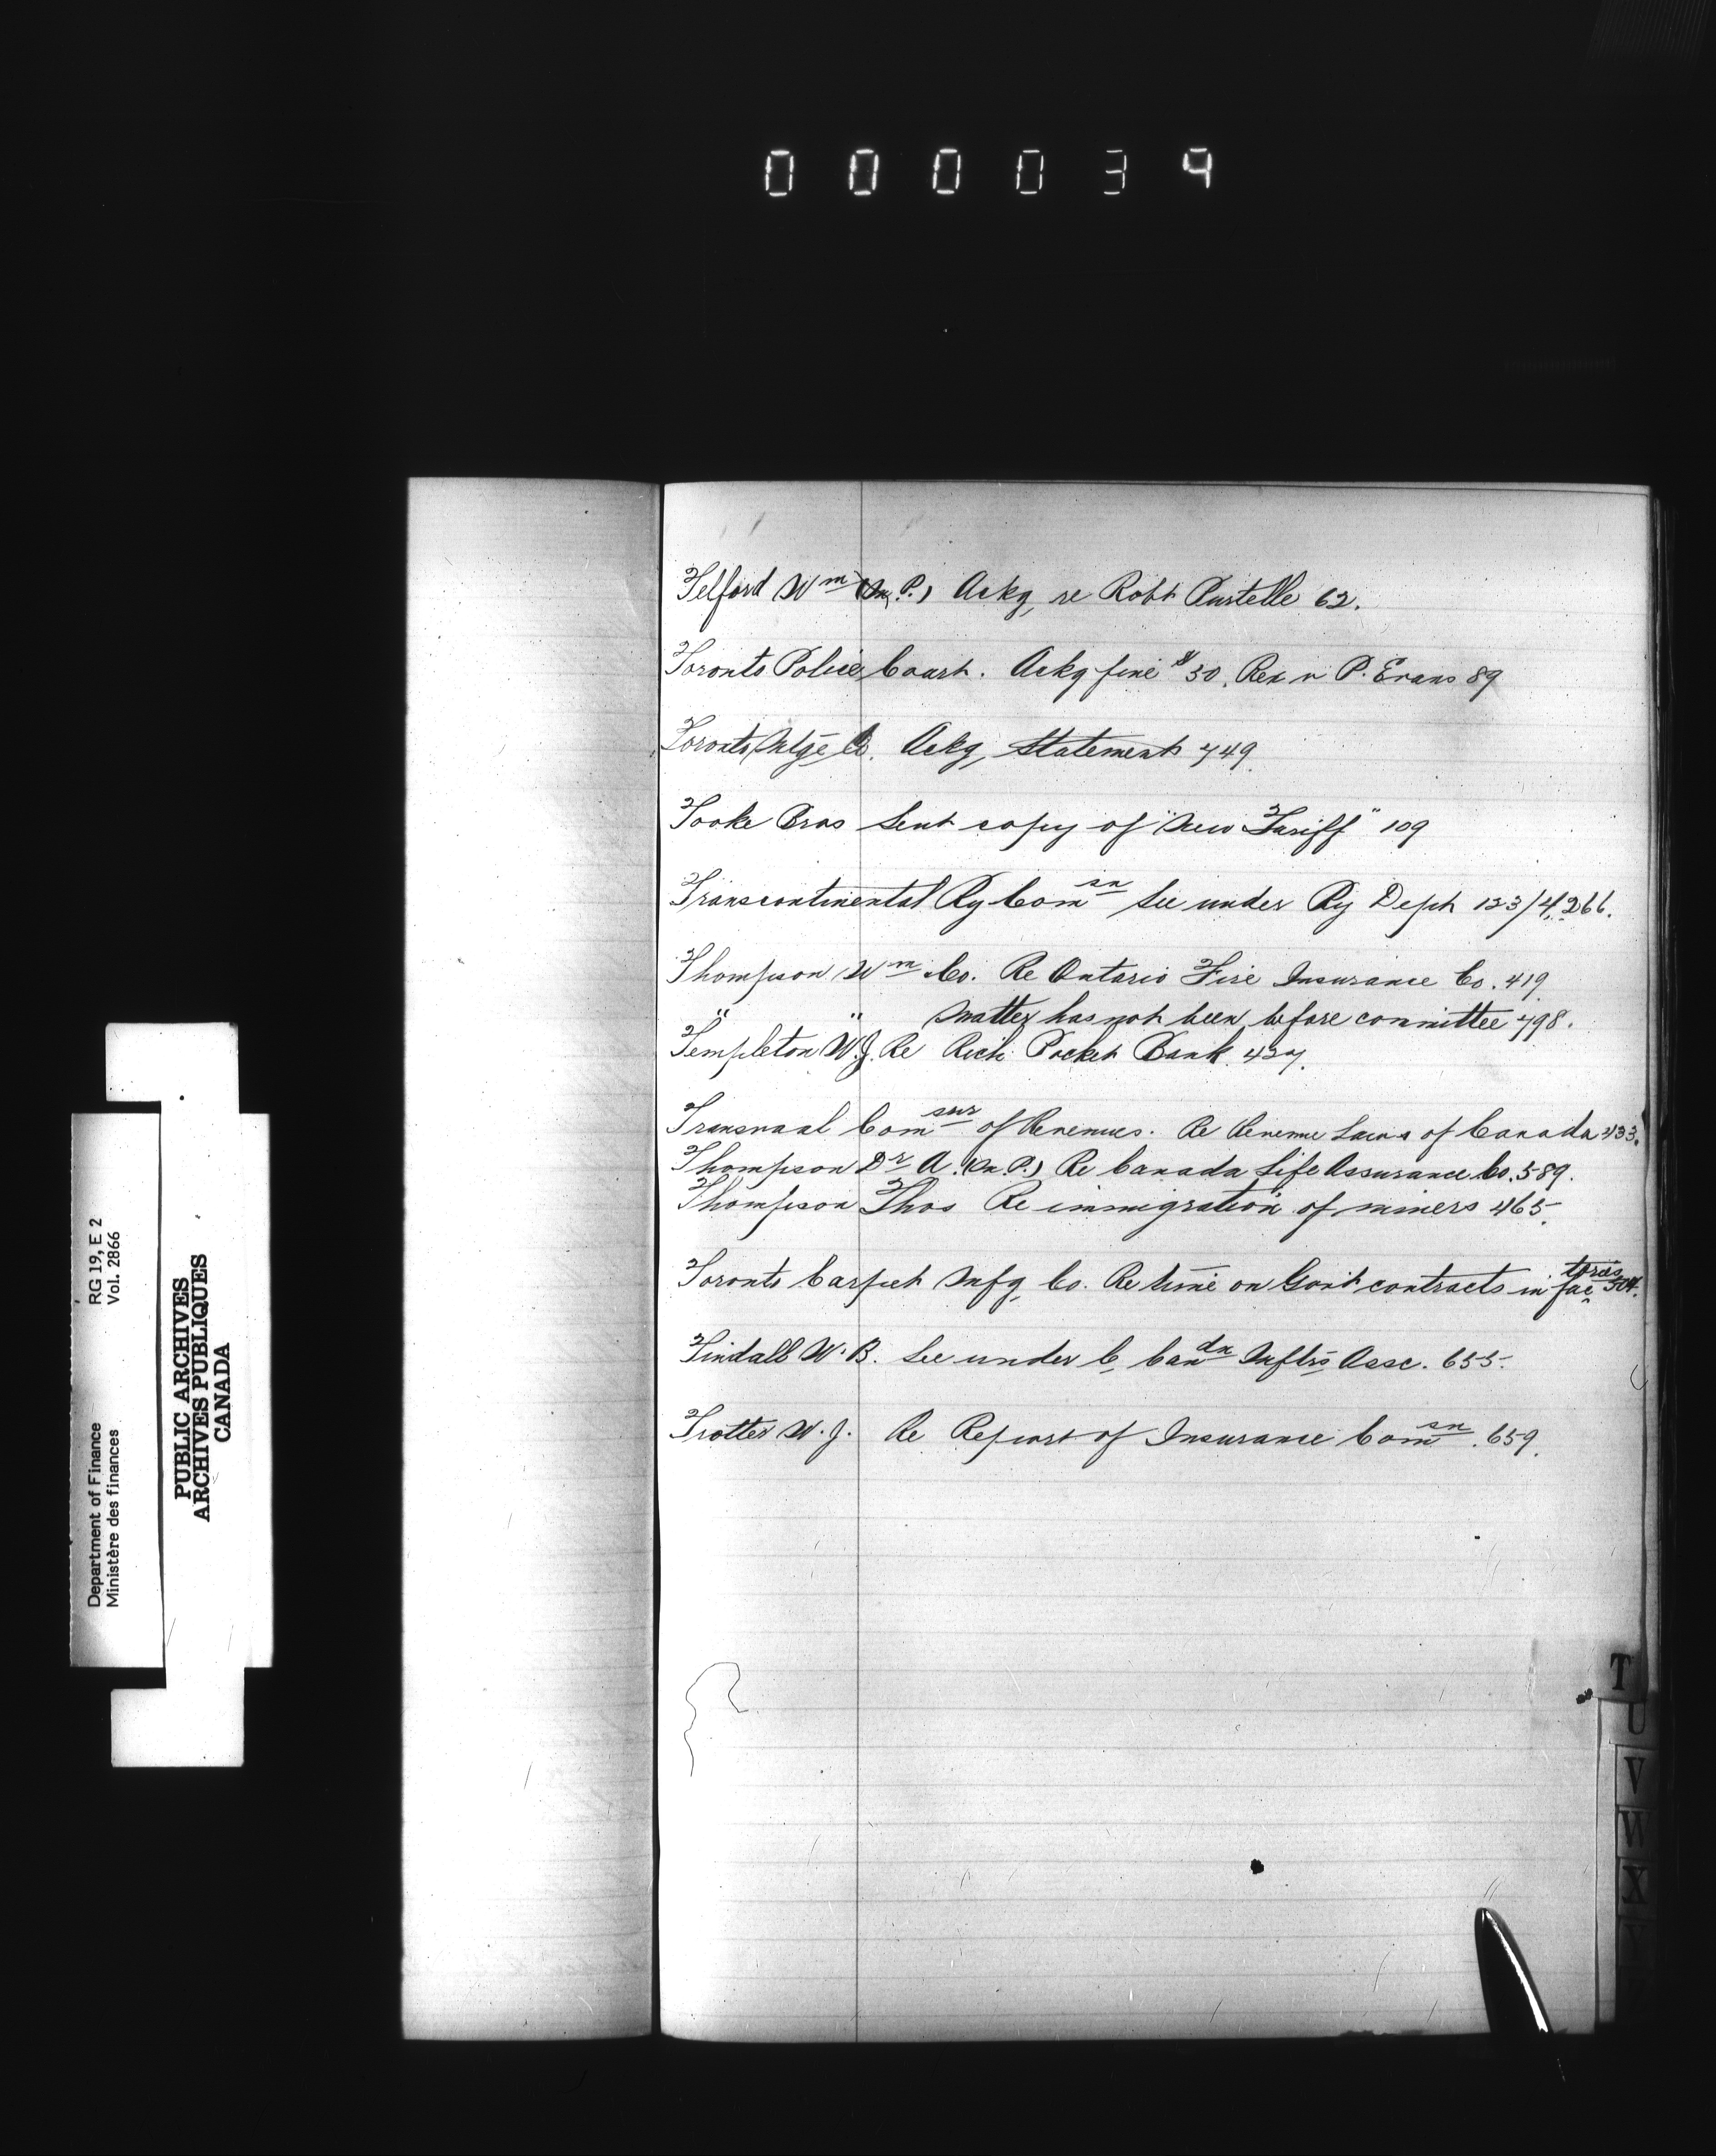 000039
Telford Wm (M.P.) Ackg, re Robt Purtelle 62.
Toronto Police Court. Ackg fine $30, Rex v P. Evans 89
Toronto Mtge Co. Ackg, Statement 449
Tooke Bros Sent copy of "New Tariff" 109
Transcontinental Ry Comsn See under Ry Dept 123/4, 266.
Thompson Wm Co. Re Ontario Fire Insurance Co. 419
" " Matter has not been before committee 498.
Templeton W.J. Re Rich Pocket Bank. 427.
Transvaal Comsnr of Revenues. Re Revenue Laws of Canada 433.
Thompson Dr A. (M.P.) Re Canada Life Assurance Co. 589.
Thompson Thos Re immigration of miners 465.
Toronto Carpet Mfg, Co. Re time on Govt contracts in factories 504.
Tindall W.B. See under C, Candn Mftrs Assc. 655.
Trotter W.J. Re Report of Insurance Comsn. 659.
T
U
V
W
X
Department of Finance RG 19, E 2
Ministère des finances Vol. 2866
PUBLIC ARCHIVES
ARCHIVES PUBLIQUES
CANADA